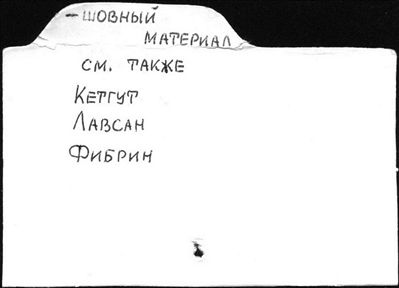 – ШОВНЫЙ
МАТЕРИАЛ
СМ. ТАКЖЕ
КЕТГУТ
ЛАВСАН
ФИБРИН